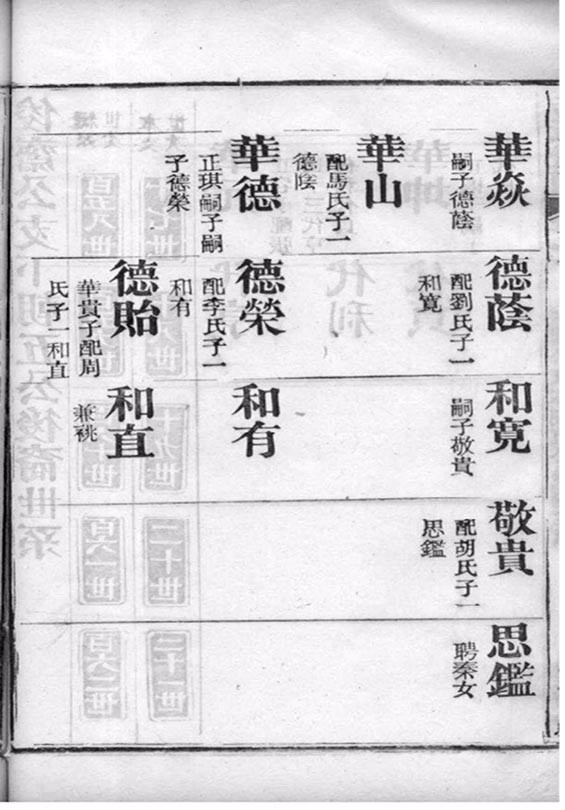 華焱
嗣子德蔭
德蔭
配劉氏子一
和寬
和寬
嗣子敬貴
敬貴
配胡氏子一
思鑑
思鑑
聘秦女
華山
配馬氏子一
德蔭
華德
正琪嗣子嗣
子德榮
德榮
配李氏子一
和有
和有
德貽
華貴子配周
氏子一和直
和直
兼祧